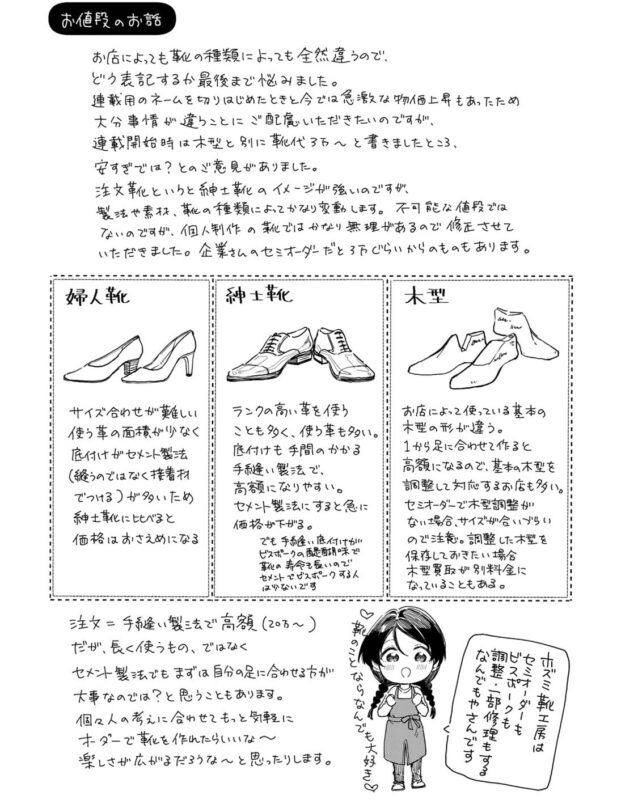 お値段のお話
お店によっても靴の種類によっても全然違うので、
どう表記するか最後まで悩みました。
連載用のネームを切りはじめたときと今では急激な物価上昇もあったため
大分事情が違うことにご配慮いただきたいのですが、
連載開始時は木型と別に靴代3万〜と書きましたところ、
安すぎでは?とのご意見がありました。
注文靴というと紳士靴のイメージが強いのですが、
製法や素材、靴の種類によってかなり変動します。不可能な値段では
ないのですが、個人制作の靴ではかなり無理があるので修正させて
いただきました。企業さんのセミオーダーだと3万ぐらいからのものもあります。
婦人靴
サイズ合わせが難しい
使う革の面積が少なく
底付けがセメント製法
(縫うのではなく接着材
でつける)が多いため
紳士靴に比べると
価格はおさえめになる
紳士靴
ランクの高い革を使う
ことも多く、使う革も多い。
底付けも手間のかかる
手縫い製法で、
高額になりやすい。
セメント製法にすると急に
価格が下がる。
でも手縫い底付けが
ビスポークの醍醐味で
靴の寿命も長いので
セメントでビスポークする人
は少ないです
木型
お店によって使っている基本の
木型の形が違う。
1から足に合わせて作ると
高額になるので、基本の木型を
調整して対応するお店も多い。
セミオーダーで木型調整が
ない場合、サイズが合いづらい
ので注意。調整した木型を
保存しておきたい場合
木型買取が別料金に
なっていることもある。
注文=手縫い製法で高額(20万〜)
だが、長く使うもの、ではなく
セメント製法でもまずは自分の足に合わせる方が
大事なのでは?と思うこともあります。
個々人の考えに合わせてもっと気軽に
オーダーで靴を作れたらいいな〜
楽しさが広がるだろうな〜と思ったりします。
靴のことならなんでも大好き
ホズミ靴工房は
セミオーダーも
ビスポークも
調整・一部修理もする
なんでもやさんです